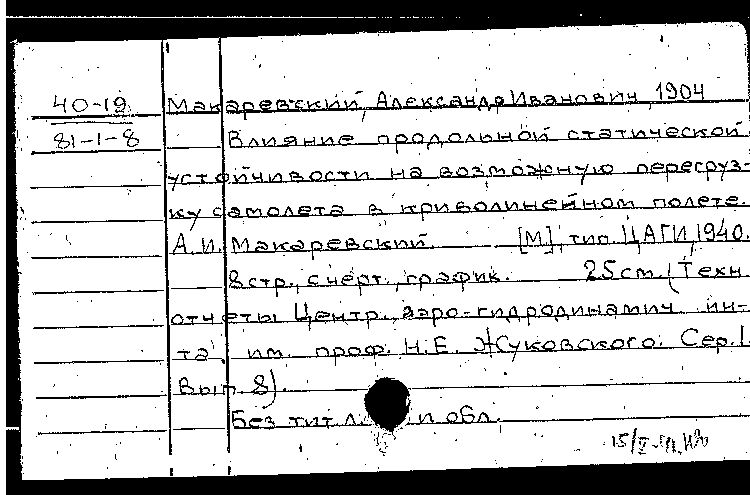 40-19
81-1-8
Макаревский, Александр Иванович, 1904
Влияние продольной статической
устойчивости на возможную перегруз-
ку самолета в криволинейном полете.
А.И. Макаревский. [М], тип. ЦАГИ, 1940.
8 стр., с черт., график. 25 см. (Техн
отчеты Центр. аэро-гидродинамич. ин-
та им. проф. Н.Е. Жуковского. Сер. I.
Вып. 8).
Без тит. л. и обл.